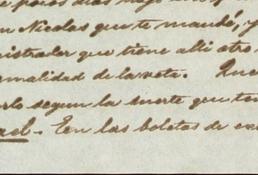 e pocos dias
n Nicolas que te mandé, y
nistrales que tiene alli otro
rmalidad de la nota. Que
rlo segun la suerte que ten
ael. En las boletas de en